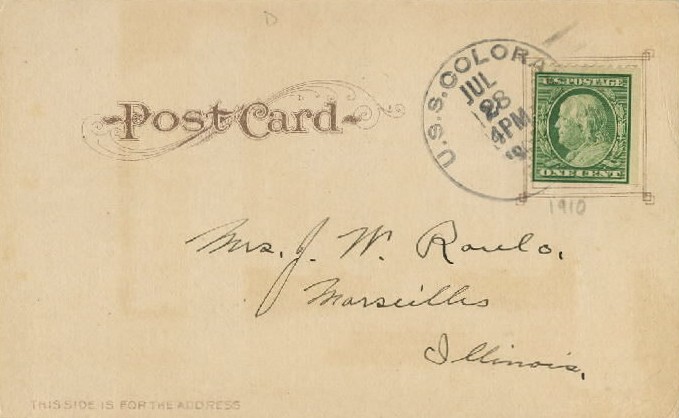 D
Post Card
U.S.S. COLORA
JUL
28
4PM
U.S. POSTAGE
ONE CENT
1910
Mrs. J. W.
Marseilles
Illinois.
THIS SIDE IS FOR THE ADDRESS